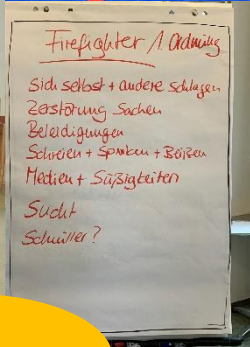 Firefighter / 1. Ordnung
Sich selbst + andere schlagen
Zerstörung Sachen
Beleidigungen
Schreien + Spucken + Beißen
Medien + Süßigkeiten
Sucht
Schnuller?